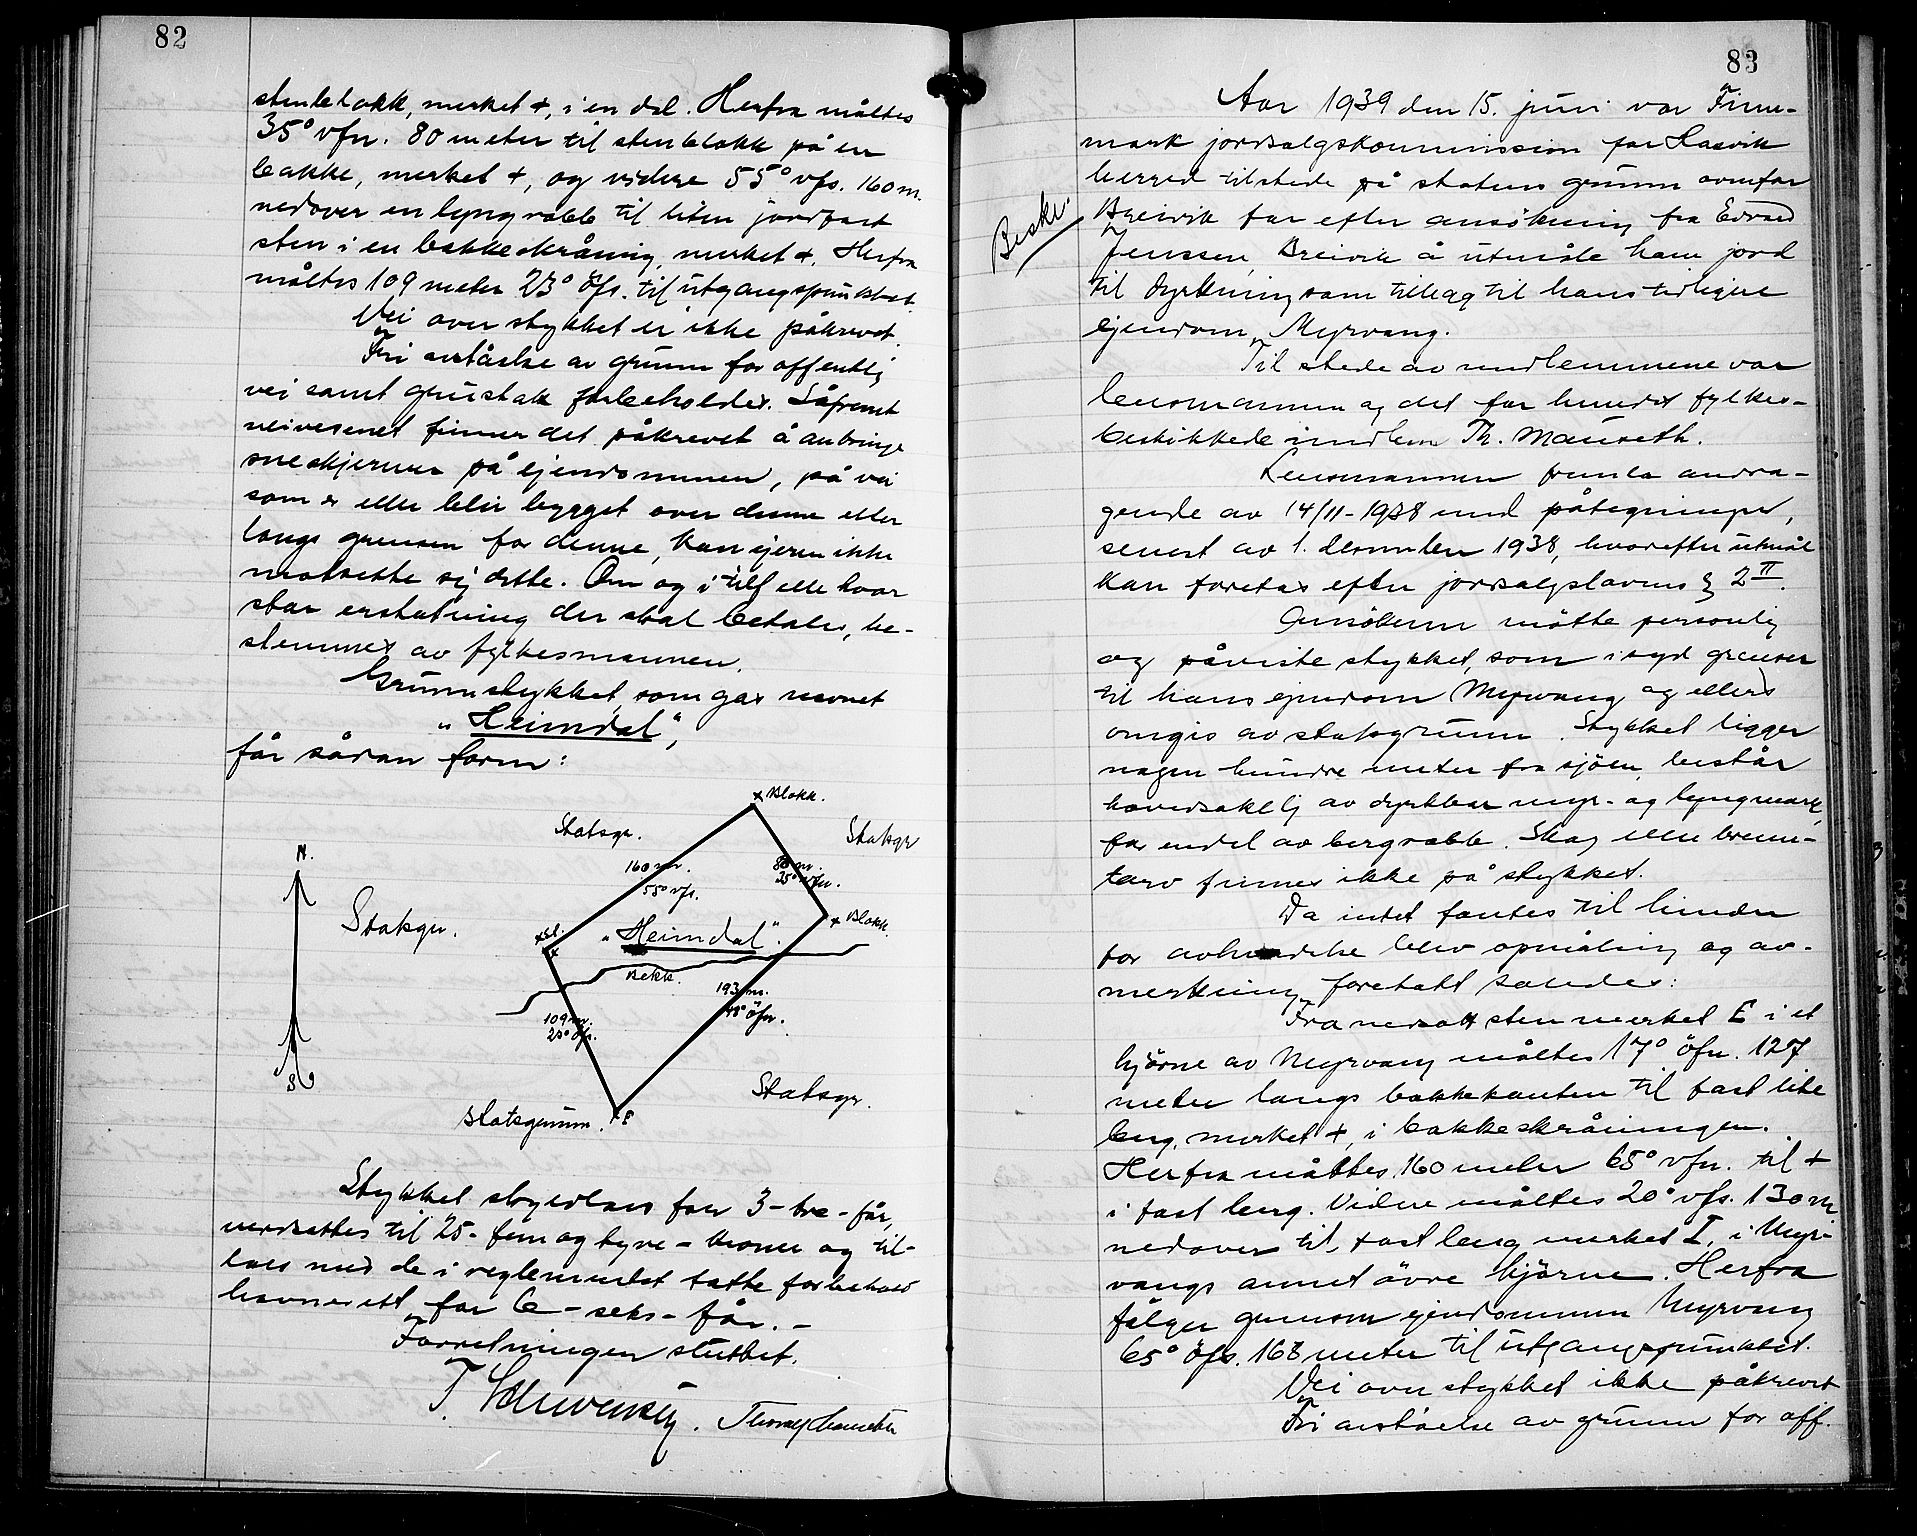 82
stenblokk, merket +, i en dal. Herfra måltes
35° vfn. 80 meter til stenblokk på en
bakke, merket +, og videre 55° vfs. 160 m.
nedover en lyngrabb til liten jordfast
sten i en bakkeskråning, merket +. Herfra
måltes 109 meter 23° öfs. til utgangspunktet.
Vei over stykket er ikke påkrevet.
Fri avståelse av grunn for offentlig
vei samt grustak forbeholdes. Såfremt
veivesenet finner det påkrevet å anbringe
sneskjermer på ejendommen, på vei
som er eller blir bygget over denne eller
langs grensen for denne, kan ejeren ikke
motsette sig dette. Om og i tilfelle hvor
stor erstatning der skal betales, be-
stemmes av fylkesmannen.
Grunnstykket, som gas navnet
"Heimdal",
får sådan form:
+ Blokk.
Statsgr.
Statsgr
N.
160 m.
55° vfs.
80 m.
35° vfn.
Statsgr.
+ Blokk.
+ St.
"Heimdal".
Bekk.
193 m.
48° öfn.
109 m.
23° öfs.
S
Statsgr.
Statsgrunn.
E
Stykket skyldlaes for 3 - tre - før,
verdsettes til 25 - fem og tyve - kroner og til-
laes med de i reglementet tatte forbehold
havnerett for 6 - seks - får. -
Forretningen sluttet.
83
Aar 1939 den 15. juni var Finn-
mark jordsalgskommission for Hasvik
herred tilstede på statens grunn ovenfor
Beskr.
Breivik for efter ansökning fra Edvard
Jenssen, Breivik å utmåle ham jord
til dyrkning som tillegg til hans tidligere
ejendom, Myrvang.
Til stede av medlemmene var
lensmannen og det for herredet fylkes-
beskikkede medlem Th. Mauseth.
Lensmannen fremla andra-
gende av 14/11-1938 med påtegninger,
senest av 1. desember 1938, hvorefter utmål
kan foretas efter jordsalgslovens § 2 II.
Ansökeren mötte personlig
og påviste stykket, som i syd grenser
til hans ejendom Myrvang og ellers
omgis av statsgrunn. Stykket ligger
nogen hundre meter fra sjöen, består
hovedsakelig av dyrkbar myr- og lyngmark,
for endel av bergrabb. Skog eller brenn-
torv finnes ikke på stykket.
Da intet fantes til hinder
for avhendelse blev opmåling og av-
merkning foretatt således:
Fra nedsatt sten merket E i et
hjörne av Myrvang måltes 17° öfn. 127
meter langs bakkekanten til fast lite
berg, merket +, i bakkeskråningen.
Herfra måltes 160 meter 65° vfn. til +
i fast berg. Videre måltes 20° vfs. 130 m
nedover til fast berg merket I, i Myr-
vangs annet övre hjörne. Herfra
fölger gjennom ejendommen Myrvang
65° öfs. 168 meter til utgangspunktet.
Vei over stykket ikke påkrevet
Fri avståelse av grunn for off.